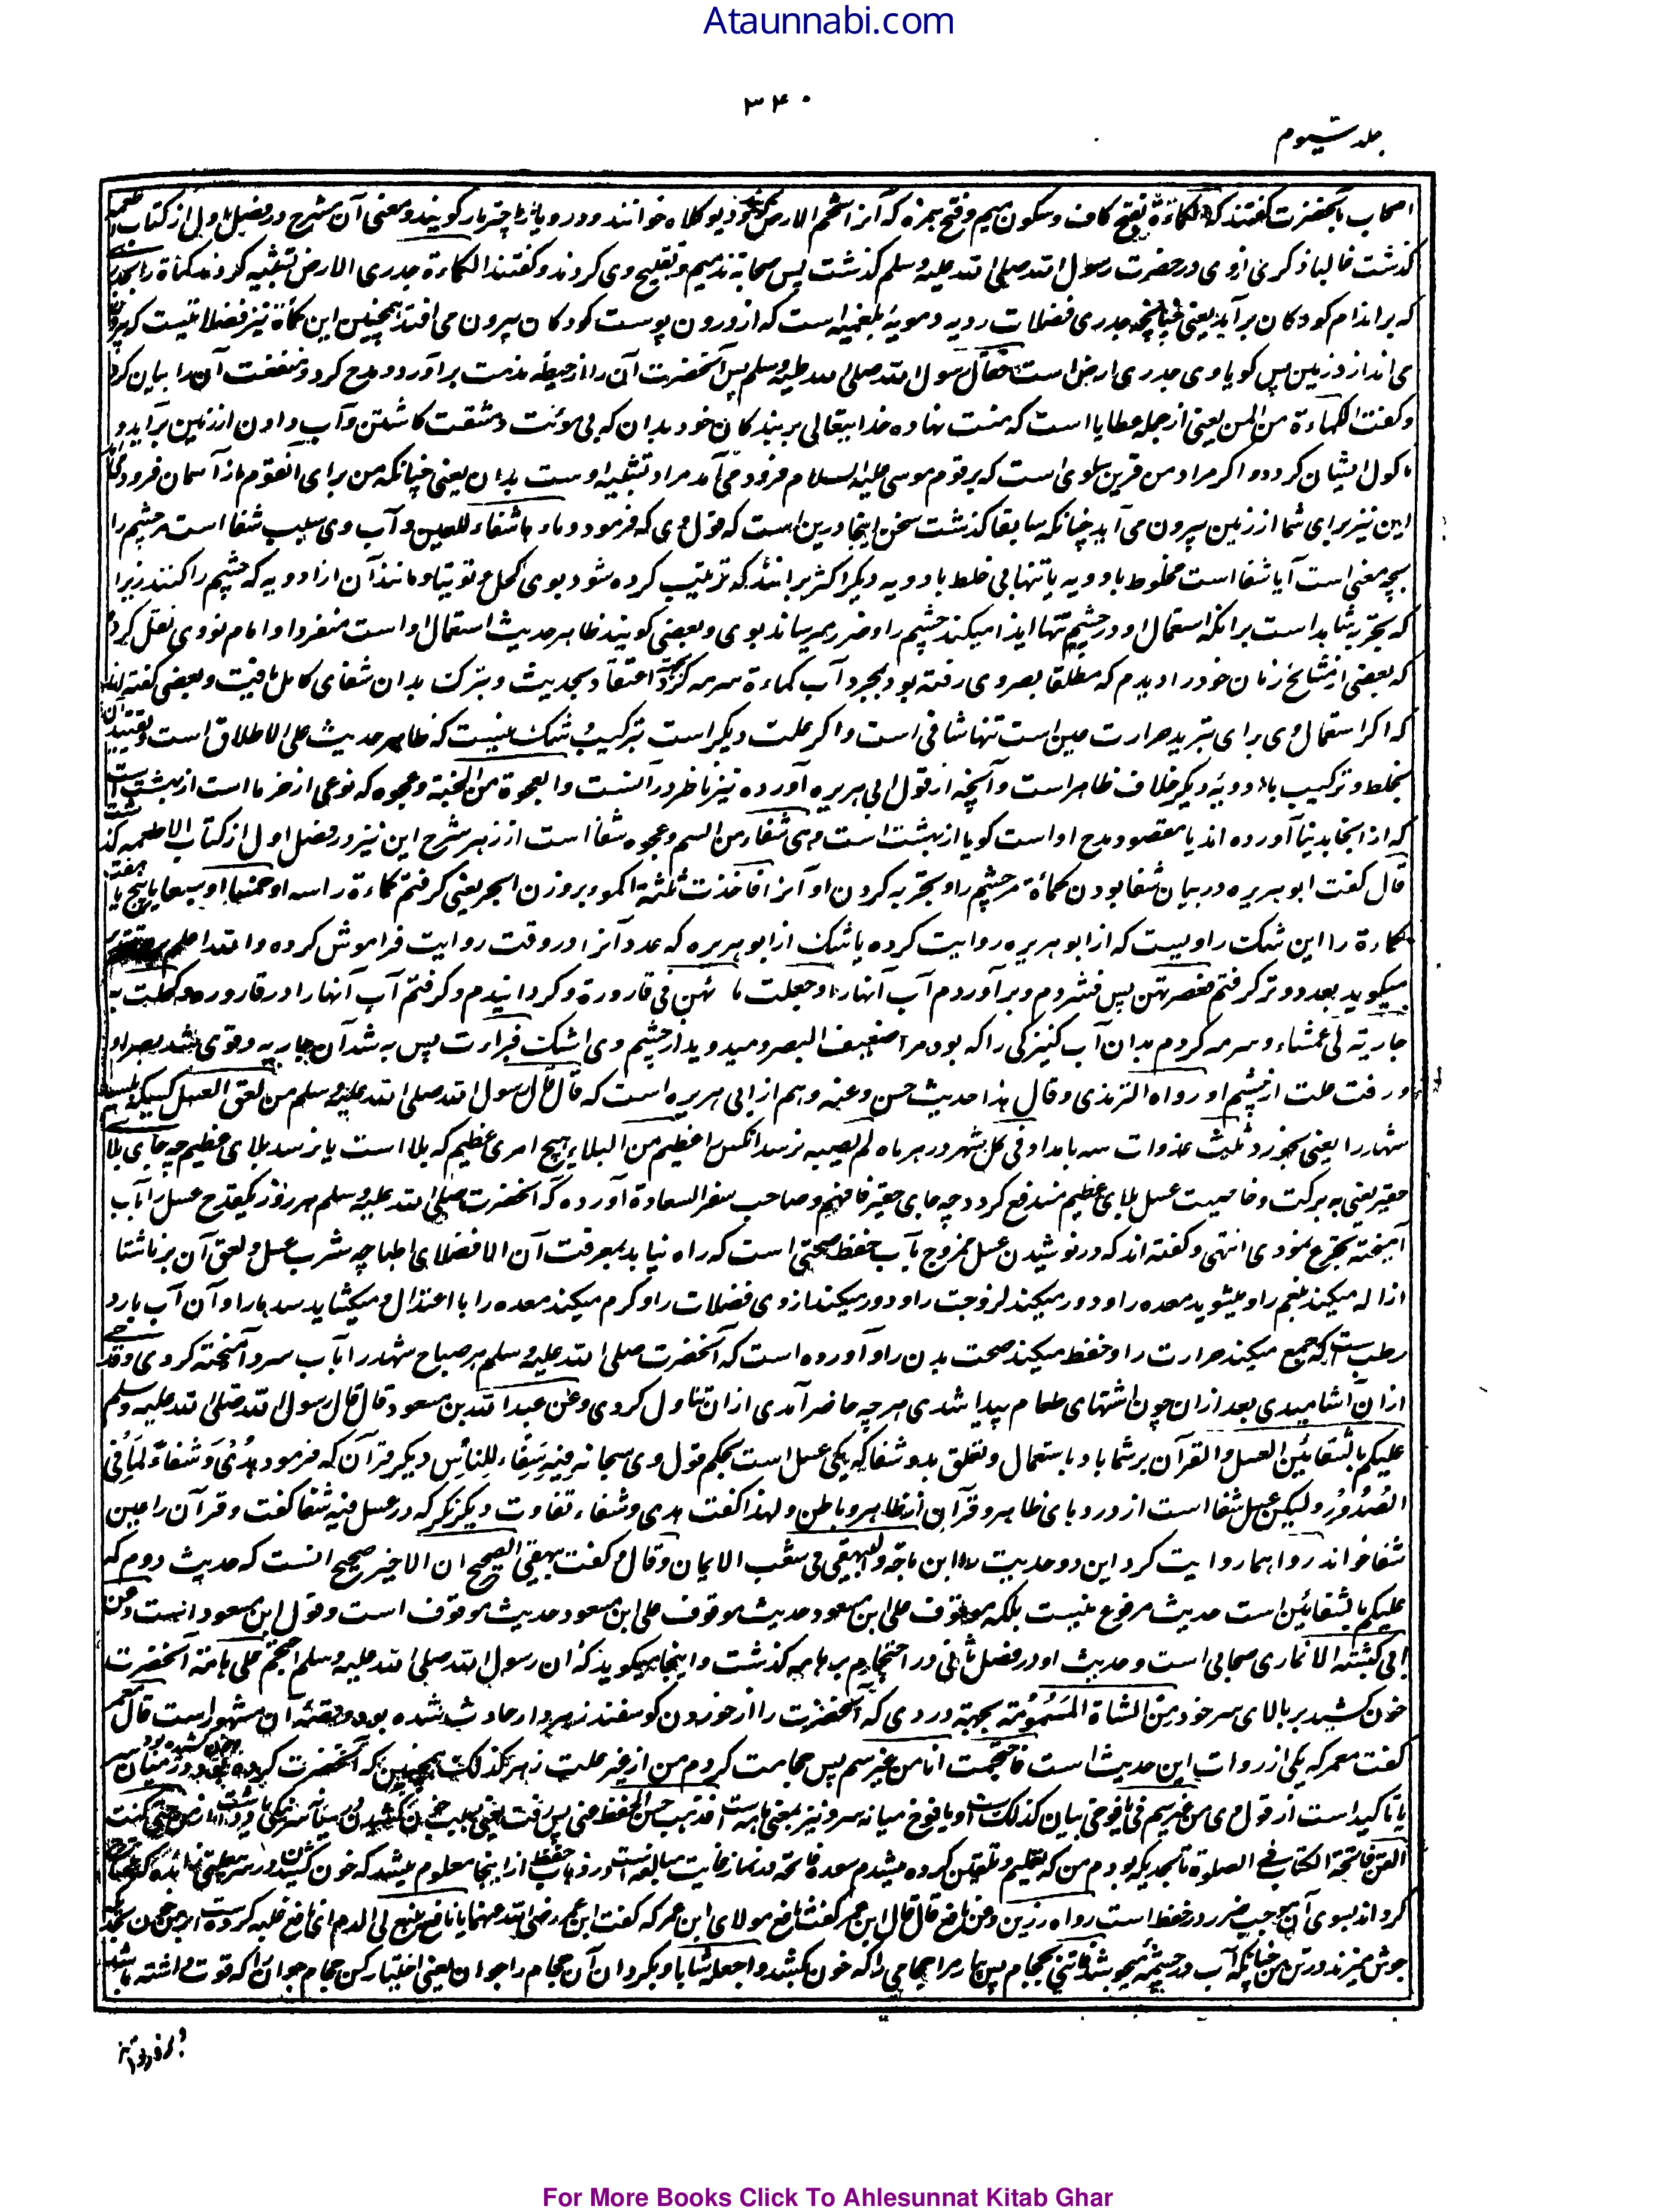 Ataunnabi.com
۳۴۰
جلد سیوم
اصحاب بآنحضرت گفتند که الکماءة بفتح کاف و سکون میم و فتح همزه که آنرا شحم الارض دیو کلاه خوانند و در دیار ما چتر مار گویند و معنی آن بشرح در فصل اول از کتاب
گذشت غالبا ذکری از وی در حضرت رسول الله صلی الله علیه وسلم گذشت پس صحابة تذمیم و تقبیح وی کردند و گفتند الکماءة جدری الارض تشبیه کردند کماة را بجدری
که بر اندام کودکان برآید یعنی چنانچه جدری فضلات ردیه دمویه بلغمیه است که از درون پوست کودکان بیرون می افتد همچنین این کماة نیز فضلاتیست که
می اندازد زمین پس گویا وی جدری ارض است فقال رسول الله صلی الله علیه وسلم پس آنحضرت آن را از حیطه مذمت برآورد و مدح کرد و منفعت آن را بیان کرد
و گفت الکماءة من المن یعنی از جمله عطایا است که منت نهاده خدایتعالی بر بندگان خود بدان که بی مونت و مشقت کاشتن و آب دادن از زمین برآید و
ماکول ایشان گردد و اگر مراد من قرین سلوی است که بر قوم موسی علیه السلام فرود می آمد مراد تشبیه اوست بدان یعنی چنانکه من برای آنقوم از آسمان فرود
این نیز برای شما از زمین بیرون می آید چنانکه سابقا گذشت سخن اینجا درین است که قول وی که فرمود و ماءها شفاء للعین و آب وی سبب شفا است مر چشم را
بچه معنی است آیا شفا است مخلوط بادویه یا تنها بی خلط بادویه دیگر اکثر برانند که ترتیب کرده شود بوی کحل و توتیا و مانند آن از ادویه که چشم را کنند زیرا
که تجربه شاهد است برانکه استعمال او در چشم تنها ایذا میکند چشم را و ضرر میرساند بوی و بعضی گویند ظاهر حدیث استعمال اوست منفردا و امام نووی نقل کرد
که بعضی از مشایخ زمان خود را دیدم که مطلقا بصر وی رفته بود بمجرد آب کماءة سرمه کرد اعتقاد بحدیث و تبرک بدان شفای کامل یافت و بعضی گفته اند
که اگر استعمال وی برای تبرید حرارت عین است تنها شافی است و اگر علت دیگر است بترکیب و شک نیست که ظاهر حدیث علی الاطلاق است و تقیید آن
بخلط و ترکیب بادویه دیگر خلاف ظاهر است و آنچه از قول ابی هریره آورده نیز ناظر در آنست و العجوة من الجنة و عجوه که نوعی از خرما است از بهشت است
که از انجا بدنیا آورده اند یا مقصود مدح اوست گویا از بهشت است وهی شفاء من السم و عجوه شفا است از زهر شرح این نیز در فصل اول از کتاب الاطعمه گذشت
قال گفت ابو هریره در بیان شفا بودن کماة مر چشم را و تجربه کردن او آنرا فاخذت ثلثة اکمو بر وزن ابحر یعنی گرفتم کماءة را سه او خمسا او سبعا یا پنج یا هفت
کماءة را این شک راویست که از ابو هریره روایت کرده یا شک از ابو هریره که عدد آنرا در وقت روایت فراموش کرده والله اعلم
میگوید بعد دو تر گرفتم فعصرتهن پس فشردم و برآوردم آب آنها را و جعلت ماءهن فی قارورة و گردانیدم و گرفتم آب آنها را در قاروره و کحلت به
جاریة لی عمشاء و سرمه کردم بدان آب کنیزکی را که بود مرا ضعیف البصر و میدوید از چشم وی اشک فبرءت پس به شد آن جاریه و قوی شد بصر او
و رفت علت از چشم او رواه الترمذی وقال هذا حدیث حسن وعنه و هم از ابی هریره است که قال قال رسول الله صلی الله علیه وسلم من لعق العسل کسیکه بلیسد
شهد را یعنی بخورد ثلث غدوات سه بامداد فی کل شهر در هر ماه لم یصبه نرسد انکس را عظیم من البلاء هیچ امری عظیم که بلا است یا نرسد بلای عظیم چه جای بلا
حقیر یعنی به برکت و خاصیت عسل بلای عظیم مندفع گردد چه جای حقیر فافهم و صاحب سفر السعادة آورده که آنحضرت صلی الله علیه وسلم هر روز یکقدح عسل را بآب
آمیخته تجرع نمودی انتهی و گفته اند که در نوشیدن عسل ممزوج بآب حفظ صحتی است که راه نیابد بمعرفت آن الا فضلای اطبا چه شرب عسل و لعق آن بر ناشتا
ازاله میکند بلغم را و میشوید معده را و دور میکند لزوجت را و دور میکند از وی فضلات را و گرم میکند معده را باعتدال و میکشاید سدها را و آن آب بارد
رطب است که جمع میکند حرارت را و حفظ میکند صحت بدن را و آورده است که آنحضرت صلی الله علیه وسلم هر صباح شهد را بآب سرد آمیخته کردی و قدحی
ازان آشامیدی بعد ازان چون اشتهای طعام پیدا شدی هر چه حاضر آمدی ازان تناول کردی وعن عبدالله بن مسعود قال قال رسول الله صلی الله علیه وسلم
علیکم بالشفائین العسل والقرآن بر شما باد باستعمال و تعلق بدو شفا که یکی عسل است بحکم قول وی سبحانه فیه شفاء للناس دیگر قرآن که فرمود هدی وشفاء لما فی
الصدور ولیکن عسل شفا است از دردهای ظاهر و قرآن از ظاهر و باطن ولهذا گفت هدی وشفاء تفاوت دیگر که در عسل فیه شفا گفت و قرآن را عین
شفا خواند رواهما روایت کرد این دو حدیث را ابن ماجة والبیهقی فی شعب الایمان وقال و گفت بیهقی الصحیح ان الاخیر صحیح آنست که حدیث دوم که
علیکم بالشفائین است حدیث مرفوع نیست بلکه موقوف علی ابن مسعود حدیث موقوف است و قول ابن مسعود است وعن
ابی کبشة الانماری صحابی است و حدیث او در فصل ثانی در احتجام بر هامه گذشت و اینجا میگوید که ان رسول الله صلی الله علیه وسلم احتجم علی هامته آنحضرت
خون کشید بر بالای سر خود من الشاة المسمومة بجهة دردی که آنحضرت را از خوردن گوسفند زهردار حادث شده بود و قصه آن مشهور است قال معمر
گفت معمر که یکی از روات این حدیث است فاحتجمت انا من غیر سم پس حجامت کردم من از غیر علت زهر کذلک همچنین که آنحضرت کرده بود
یا تاکید است از قول وی من غیر سم فی یافوخی بیان کذلک است و یافوخ میانه سر و نیز بمعنی هامه است فذهب حسن الحفظ منی پس رفت یعنی بسبب خون کشیدن
القن فاتحة الکتاب فی الصلوة تا بحدیکه بودم من که تعلیم و تلقین کرده میشدم سوره فاتحه در نماز غایت مبالغه است در ذهاب حفظ از اینجا معلوم میشد که خون کشیدن
گرداند بسوی آن موجب ضرر در حفظ است رواه رزین وعن نافع قال قال ابن عمر گفت نافع مولای ابن عمر که گفت ابن عمر رضی الله عنهما یا نافع ینبع لی الدم ای نافع غلبه کرده است
جوش میزند در تن من چنانکه آب در چشمه میجوشد فاتنی بحجام پس بیار مرا حجامی را که خون بکشد واجعله شابا و بگردان آن حجام را جوان یعنی اختیار کن حجام جوان را که قوت داشته باشد
For More Books Click To Ahlesunnat Kitab Ghar